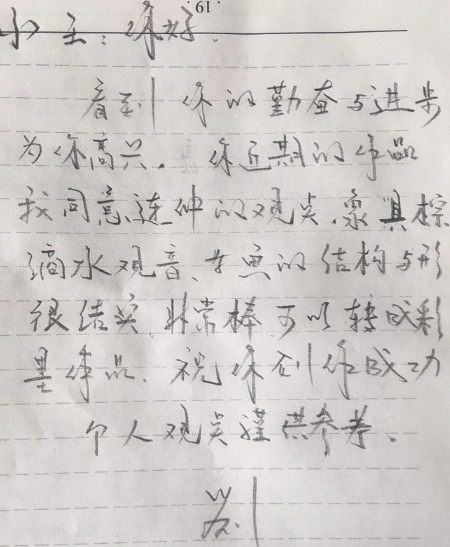 19.
小王：你好.
看到你的勤奋与进步
为你高兴. 你近期的作品
我同意连仲的观点.家具棕
滴水观音、女鱼的结构与形
很结实 非常棒 可以转成彩
墨作品. 祝你创作成功
个人观点谨供参考、